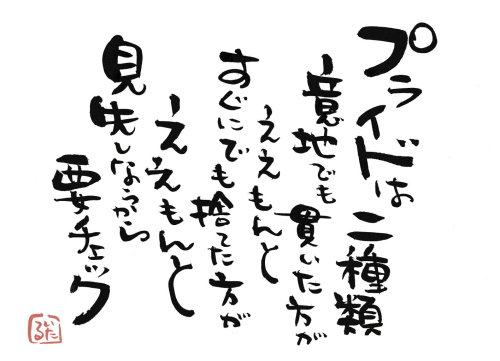 プライドは二種類
意地でも貫いた方が
ええもんと
すぐにでも捨てた方が
ええもんと
見失しなうから
要チェック